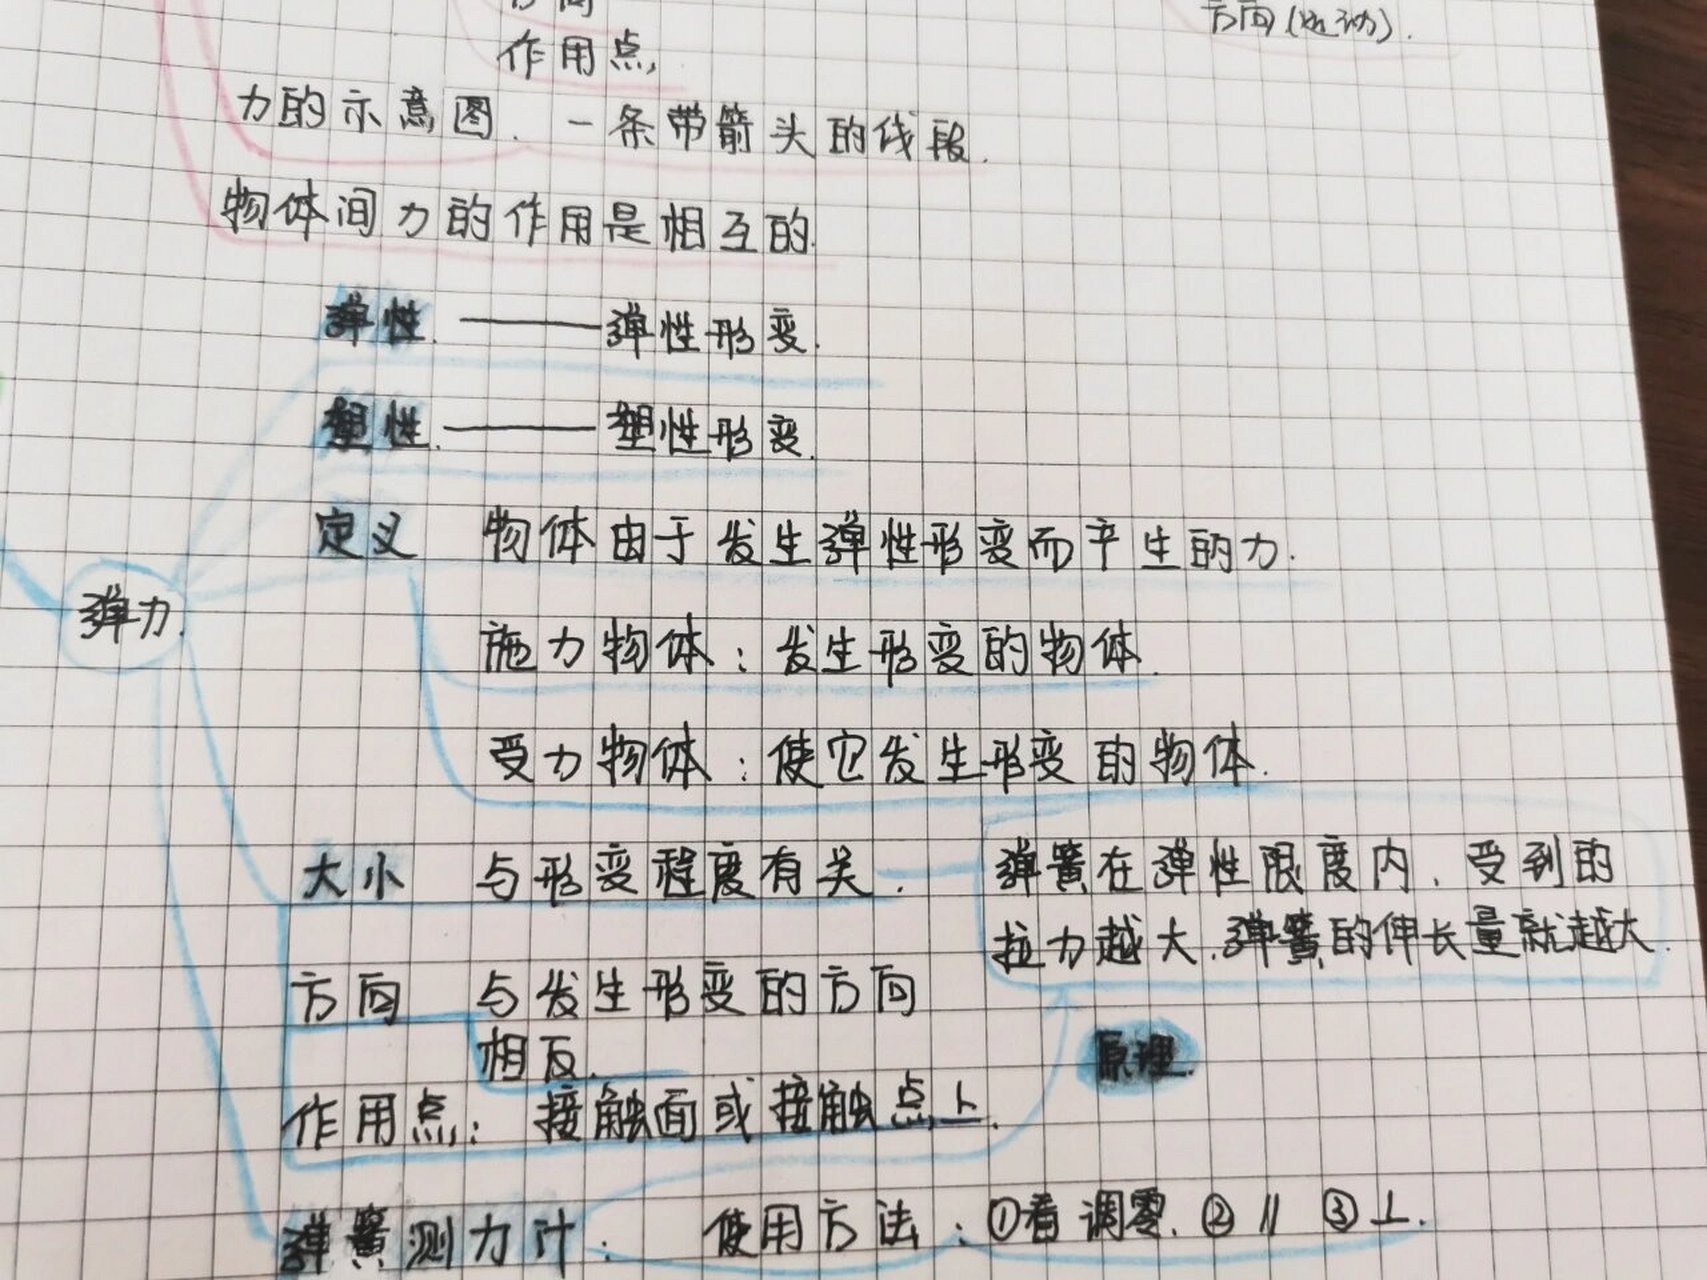 方向
作用点
方向(运动).
力的示意图. 一条带箭头的线段.
物体间力的作用是相互的.
弹性. ——弹性形变.
塑性. ——塑性形变.
定义 物体由于发生弹性形变而产生的力.
弹力.
施力物体: 发生形变的物体.
受力物体: 使它发生形变的物体.
大小 与形变程度有关.
弹簧在弹性限度内, 受到的
拉力越大, 弹簧的伸长量就越大.
方向 与发生形变的方向
相反.
原理.
作用点: 接触面或接触点上.
弹簧测力计: 使用方法: ①看调零. ② // ③⊥.